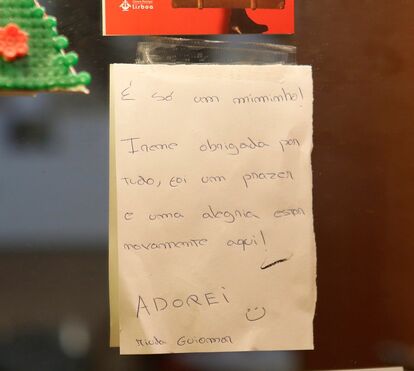 Lisboa
É só um miminho!
Irene obrigada por
tudo, foi um prazer
e uma alegria estar
novamente aqui!
ADOREi
Guiomar